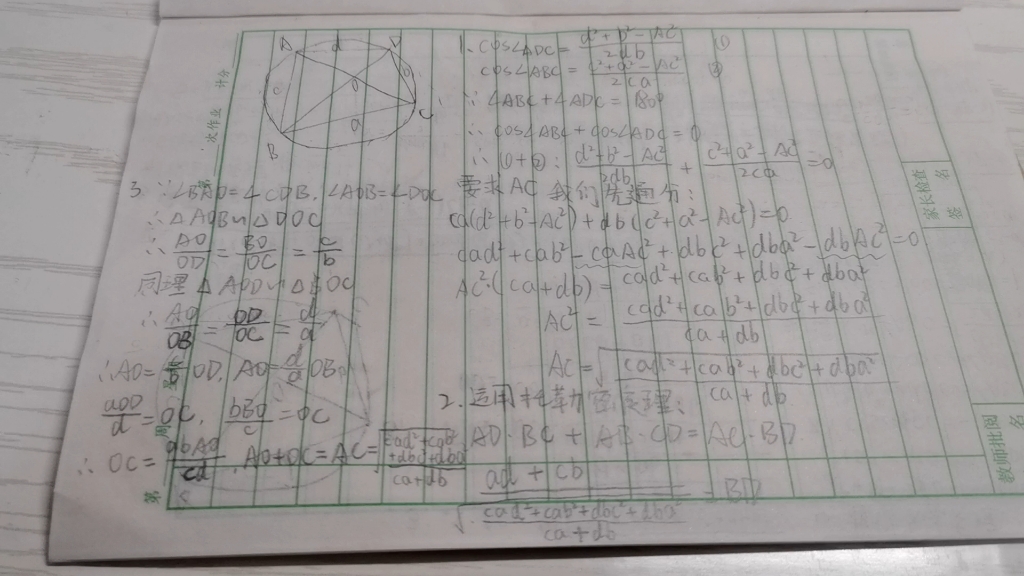 A d D
b
c
O
a C
B
1. cos∠ADC = (d²+b²-AC²)/2db ①
cos∠ABC = (c²+a²-AC²)/2ca ②
∵ ∠ABC+∠ADC=180°
∴ cos∠ABC+cos∠ADC=0
∴ ①+②: (d²+b²-AC²)/2db + (c²+a²-AC²)/2ca =0
要求AC 我们先通分:
ca(d²+b²-AC²)+db(c²+a²-AC²)=0
cad²+cab²-caAC²+dbc²+dba²-dbAC²=0
AC²·(ca+db)=cad²+cab²+dbc²+dba²
AC²=(cad²+cab²+dbc²+dba²)/(ca+db)
AC=√((cad²+cab²+dbc²+dba²)/(ca+db))
2. 运用托勒密定理:
AD·BC+AB·CD=AC·BD
(ad+cb)/√((cad²+cab²+dbc²+dba²)/(ca+db))=BD
3. ∵∠BAO=∠CDB, ∠AOB=∠DOC
∴△AOB∽△DOC
∴ AO/OD=BO/OC=c/b
同理△AOD∽△BOC
∴ AO/OB=OD/OC=d/a
∴AO= OD, AO=d/a OB
aOD/d=OC, bBO/c=OC
∴ OC=abAO/cd, AO+OC=AC=√((cad²+cab²+dbc²+dba²)/(ca+db))
第 次作业 计分
家长检查
签 名
教师批图
名
第 周